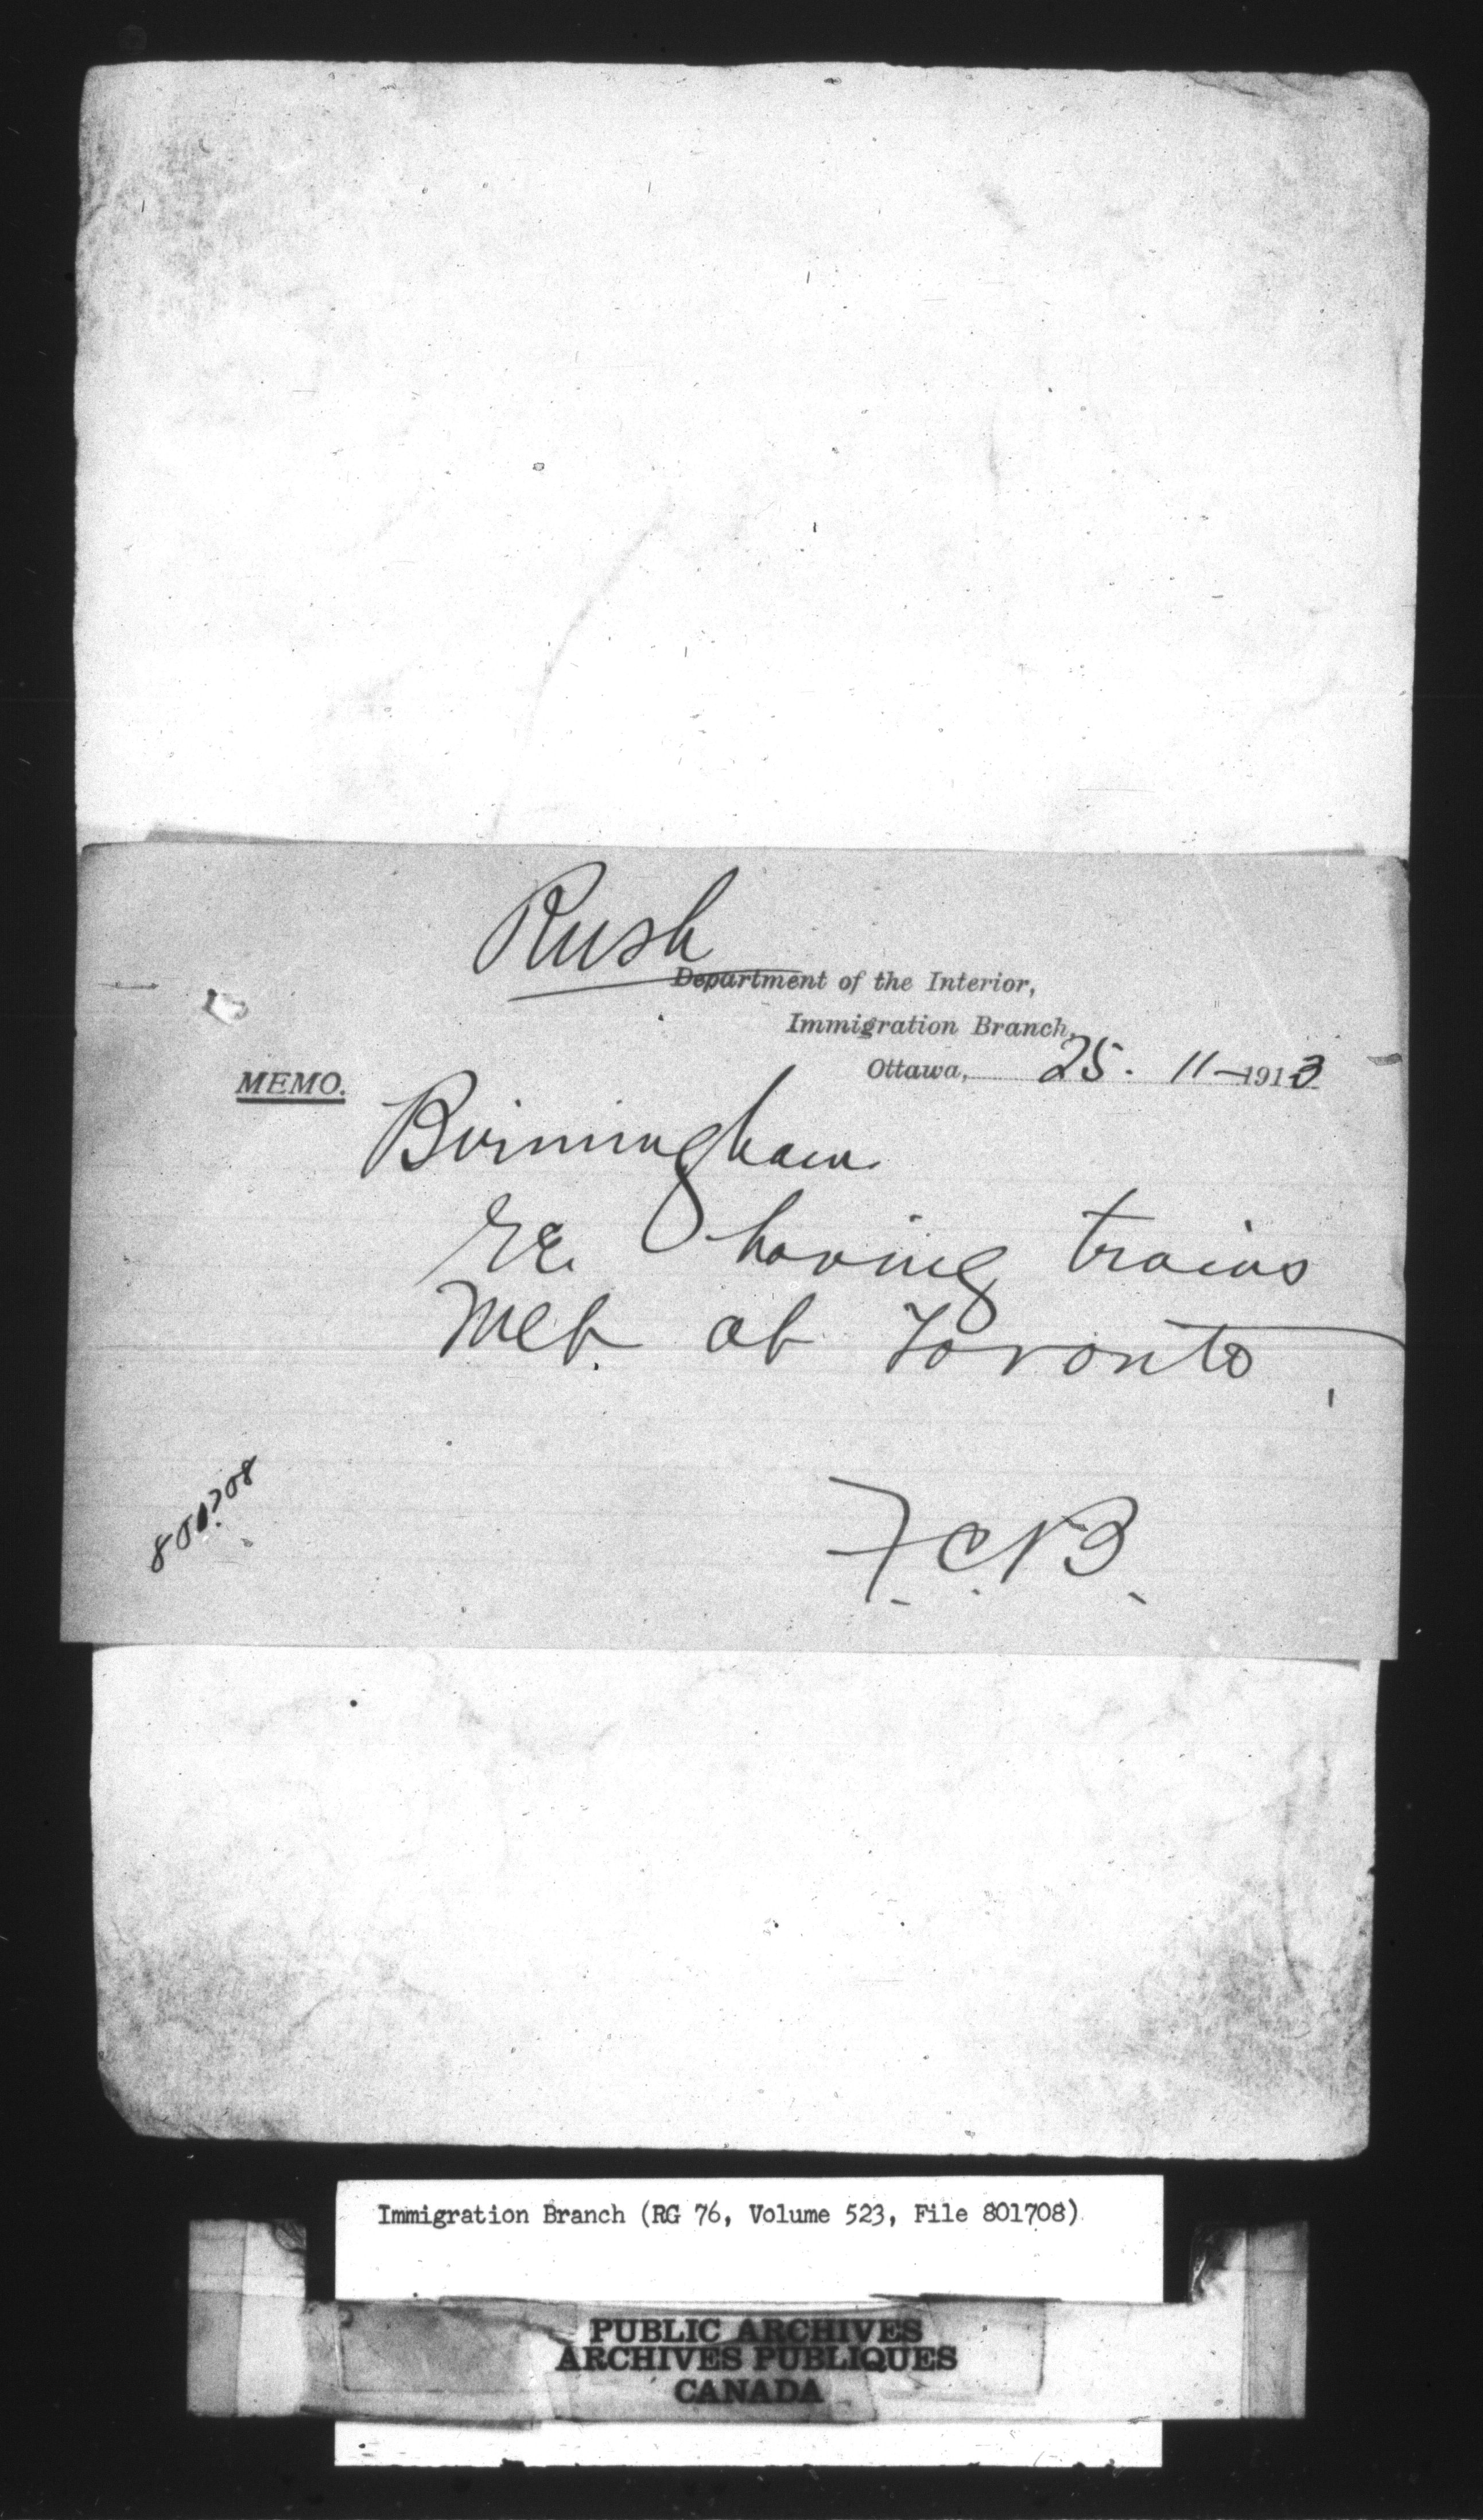 Rush
Department of the Interior,
Immigration Branch,
Ottawa, 25. 11-1913
MEMO.
Birmingham
re having trains
Met. at Toronto
801708
F.C.B.
Immigration Branch (RG 76, Volume 523, File 801708)
PUBLIC ARCHIVES
ARCHIVES PUBLIQUES
CANADA